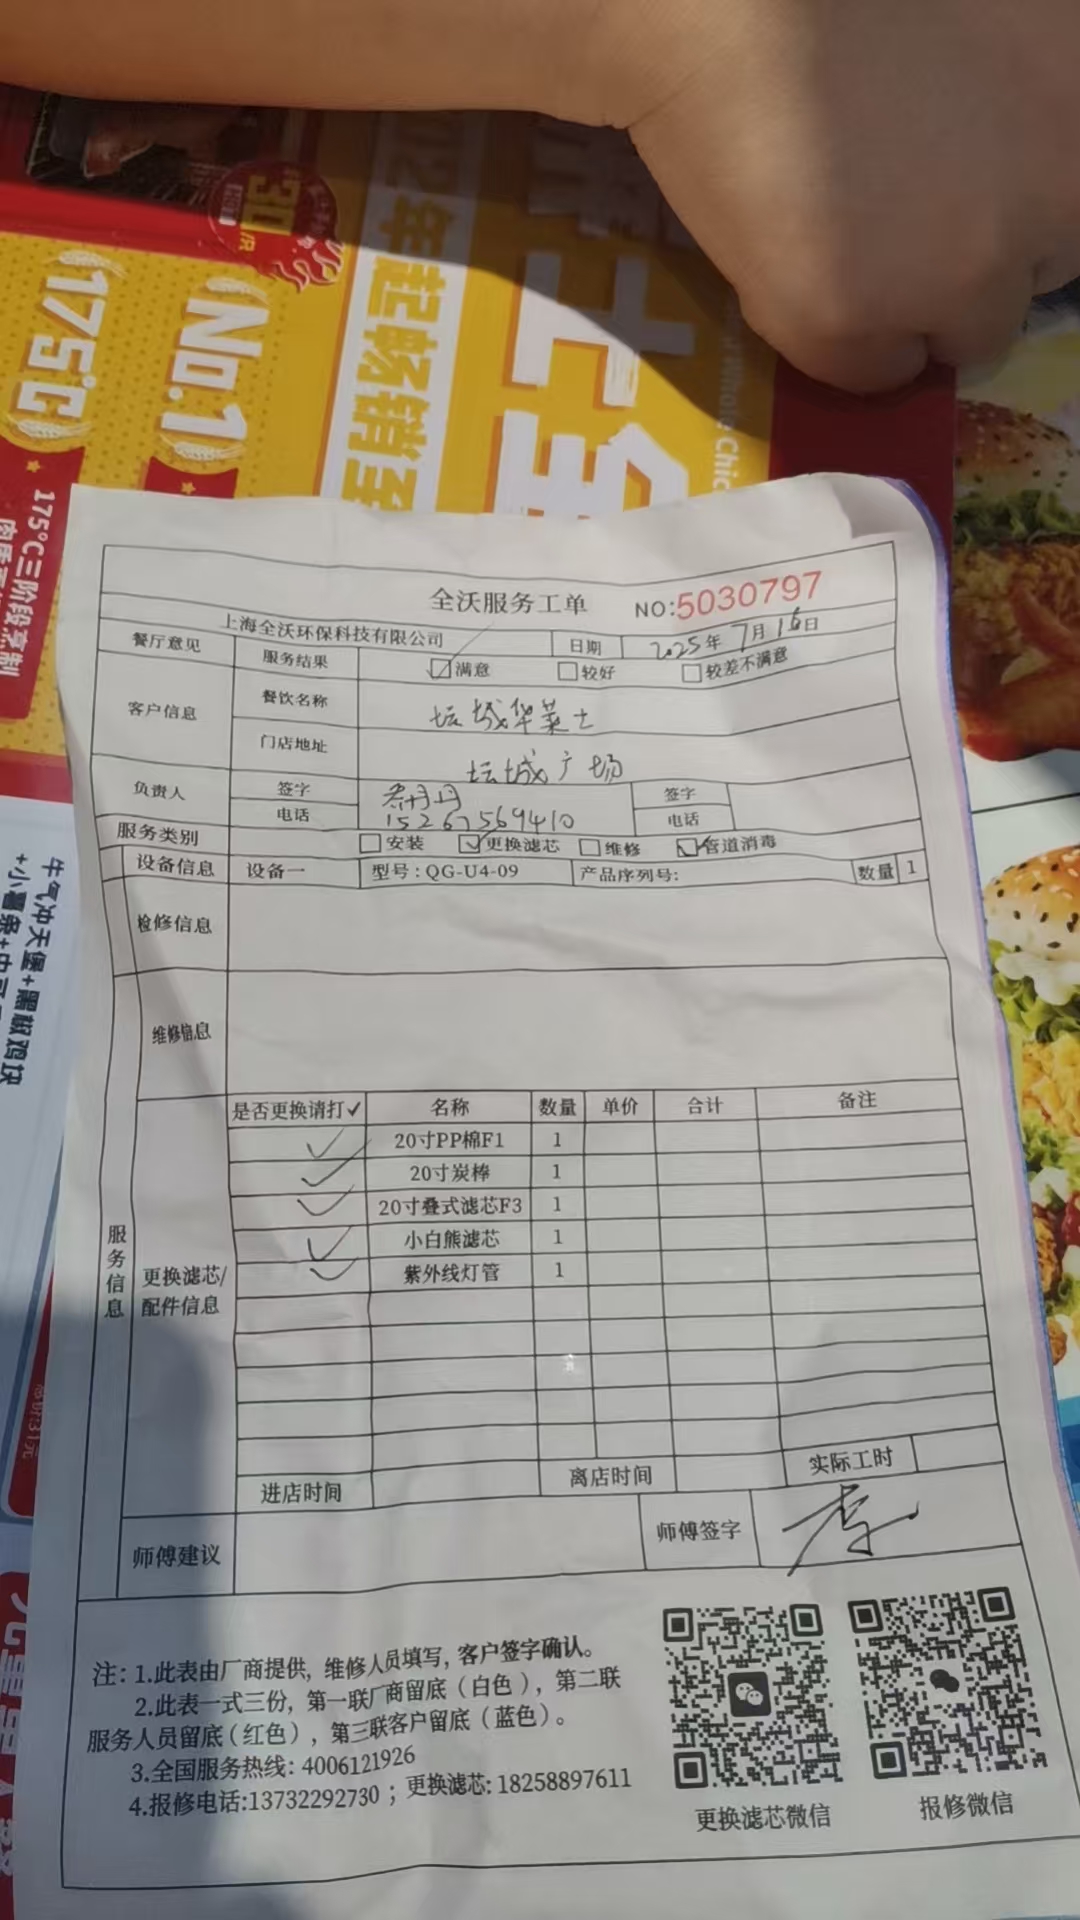 30
12年起畅销至
No.1
175℃
175℃三阶段烹制
牛气冲天堡+黑椒鸡块
全沃服务工单 NO:5030797
上海全沃环保科技有限公司 日期 2025年7月16日
餐厅意见 服务结果 满意 较好 较差不满意
客户信息 餐饮名称 坛城华莱士
门店地址 坛城广场
负责人 签字 签字
电话 15267569410 电话
服务类别 安装 更换滤芯 维修 管道消毒
设备信息 设备一 型号:QG-U4-09 产品序列号: 数量 1
检修信息
维修信息
服务信息
更换滤芯/配件信息
是否更换请打✓ 名称 数量 单价 合计 备注
✓ 20寸PP棉F1 1
✓ 20寸炭棒 1
✓ 20寸叠式滤芯F3 1
✓ 小白熊滤芯 1
✓ 紫外线灯管 1
进店时间 离店时间 实际工时
师傅建议 师傅签字 李
注: 1.此表由厂商提供, 维修人员填写, 客户签字确认。
2.此表一式三份, 第一联厂商留底(白色), 第二联
服务人员留底(红色), 第三联客户留底(蓝色)。
3.全国服务热线: 4006121926
4.报修电话:13732292730 ; 更换滤芯: 18258897611
更换滤芯微信 报修微信